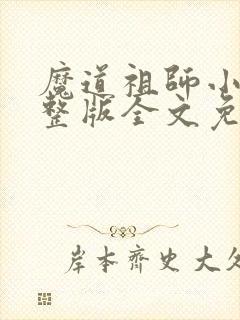 魔道祖師小
整版全文免
岸本齊史大久